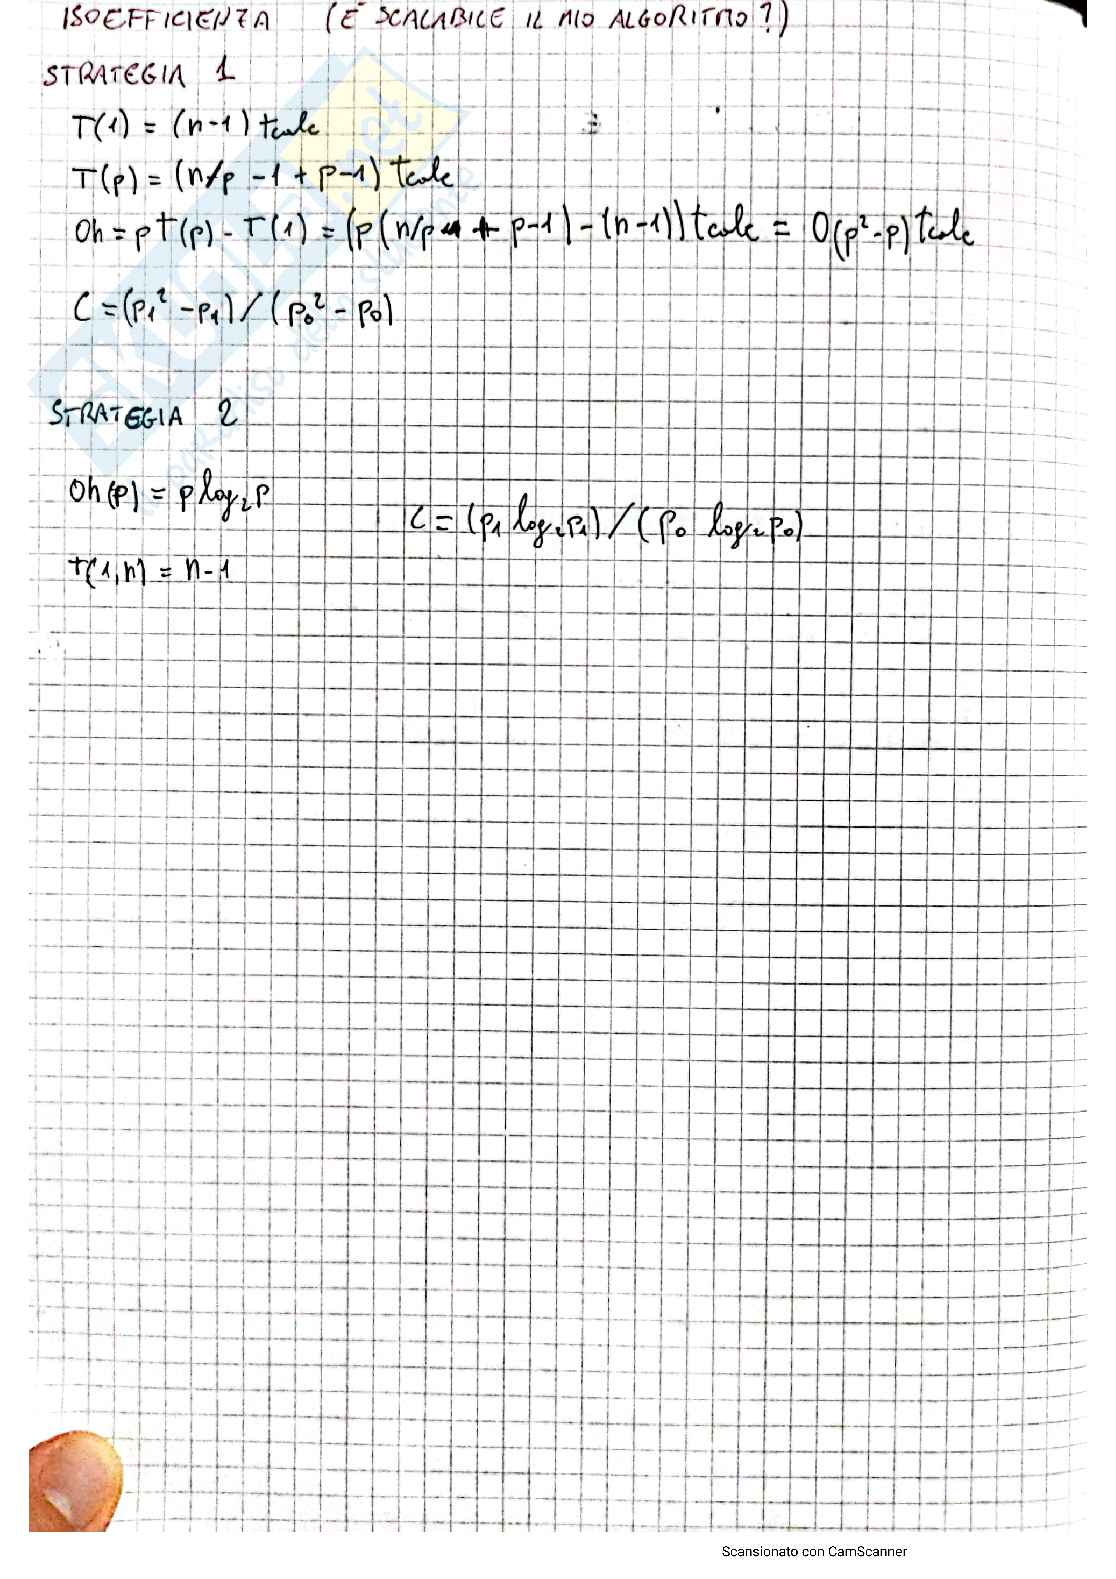 ISOEFFICIENZA (È SCALABILE IL MIO ALGORITMO?)
STRATEGIA 1
T(1) = (n-1) tcalc
T(p) = (n/p -1 + p-1) tcalc
Oh = pT(p) - T(1) = (p(n/p + p-1) - (n-1)) tcalc = O(p²-p) tcalc
C = (p₁² - p₁) / (p₀² - p₀)
STRATEGIA 2
Oh(p) = p log₂ p
C = (p₁ log₂ p₁) / (p₀ log₂ p₀)
t(1,n) = n-1
Scansionato con CamScanner